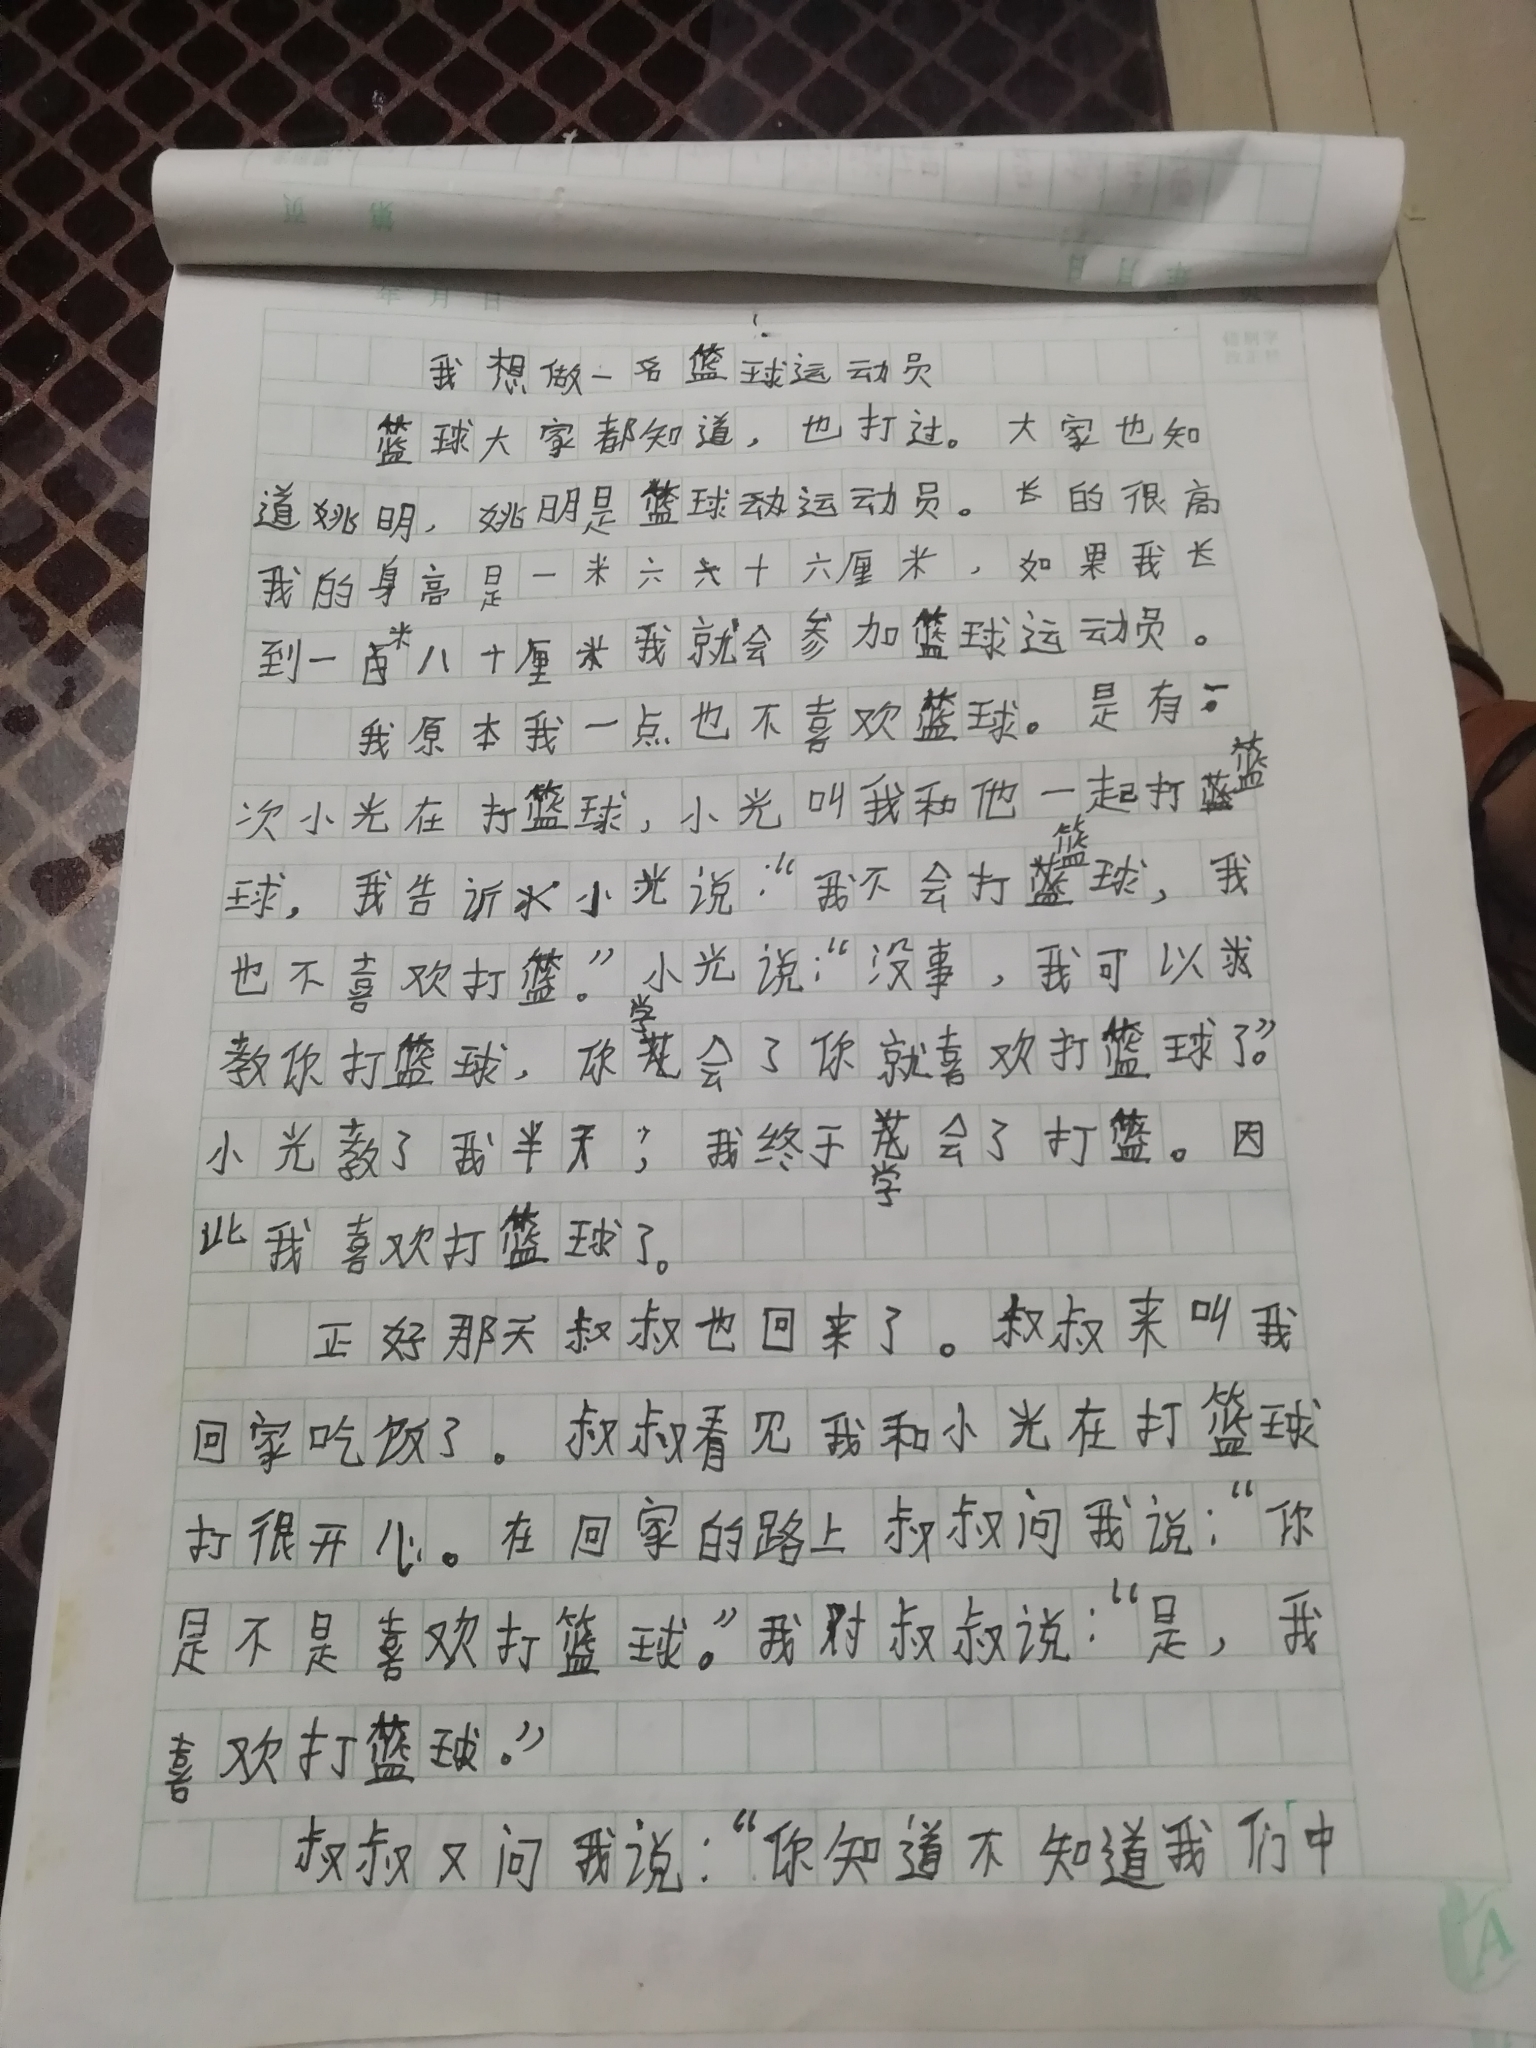 年 月 日
我想做一名篮球运动员
篮球大家都知道，也打过。大家也知
道姚明，姚明是篮球动运动员。长的很高
我的身高是一米六六十六厘米，如果我长
到一米八十厘米我就会参加篮球运动员。
我原本我一点也不喜欢篮球。是有一
次小光在打篮球，小光叫我和他一起打篮
球，我告诉小光说：“我不会打篮球，我
也不喜欢打篮。”小光说：“没事，我可以
教你打篮球，你学会了你就喜欢打篮球了”。
小光教了我半天，我终于学会了打篮。因
此我喜欢打篮球了。
正好那天叔叔也回来了。叔叔来叫我
回家吃饭了。叔叔看见我和小光在打篮球
打很开心。在回家的路上叔叔问我说：“你
是不是喜欢打篮球。”我对叔叔说：“是，我
喜欢打篮球。”
叔叔又问我说：“你知道不知道我们中